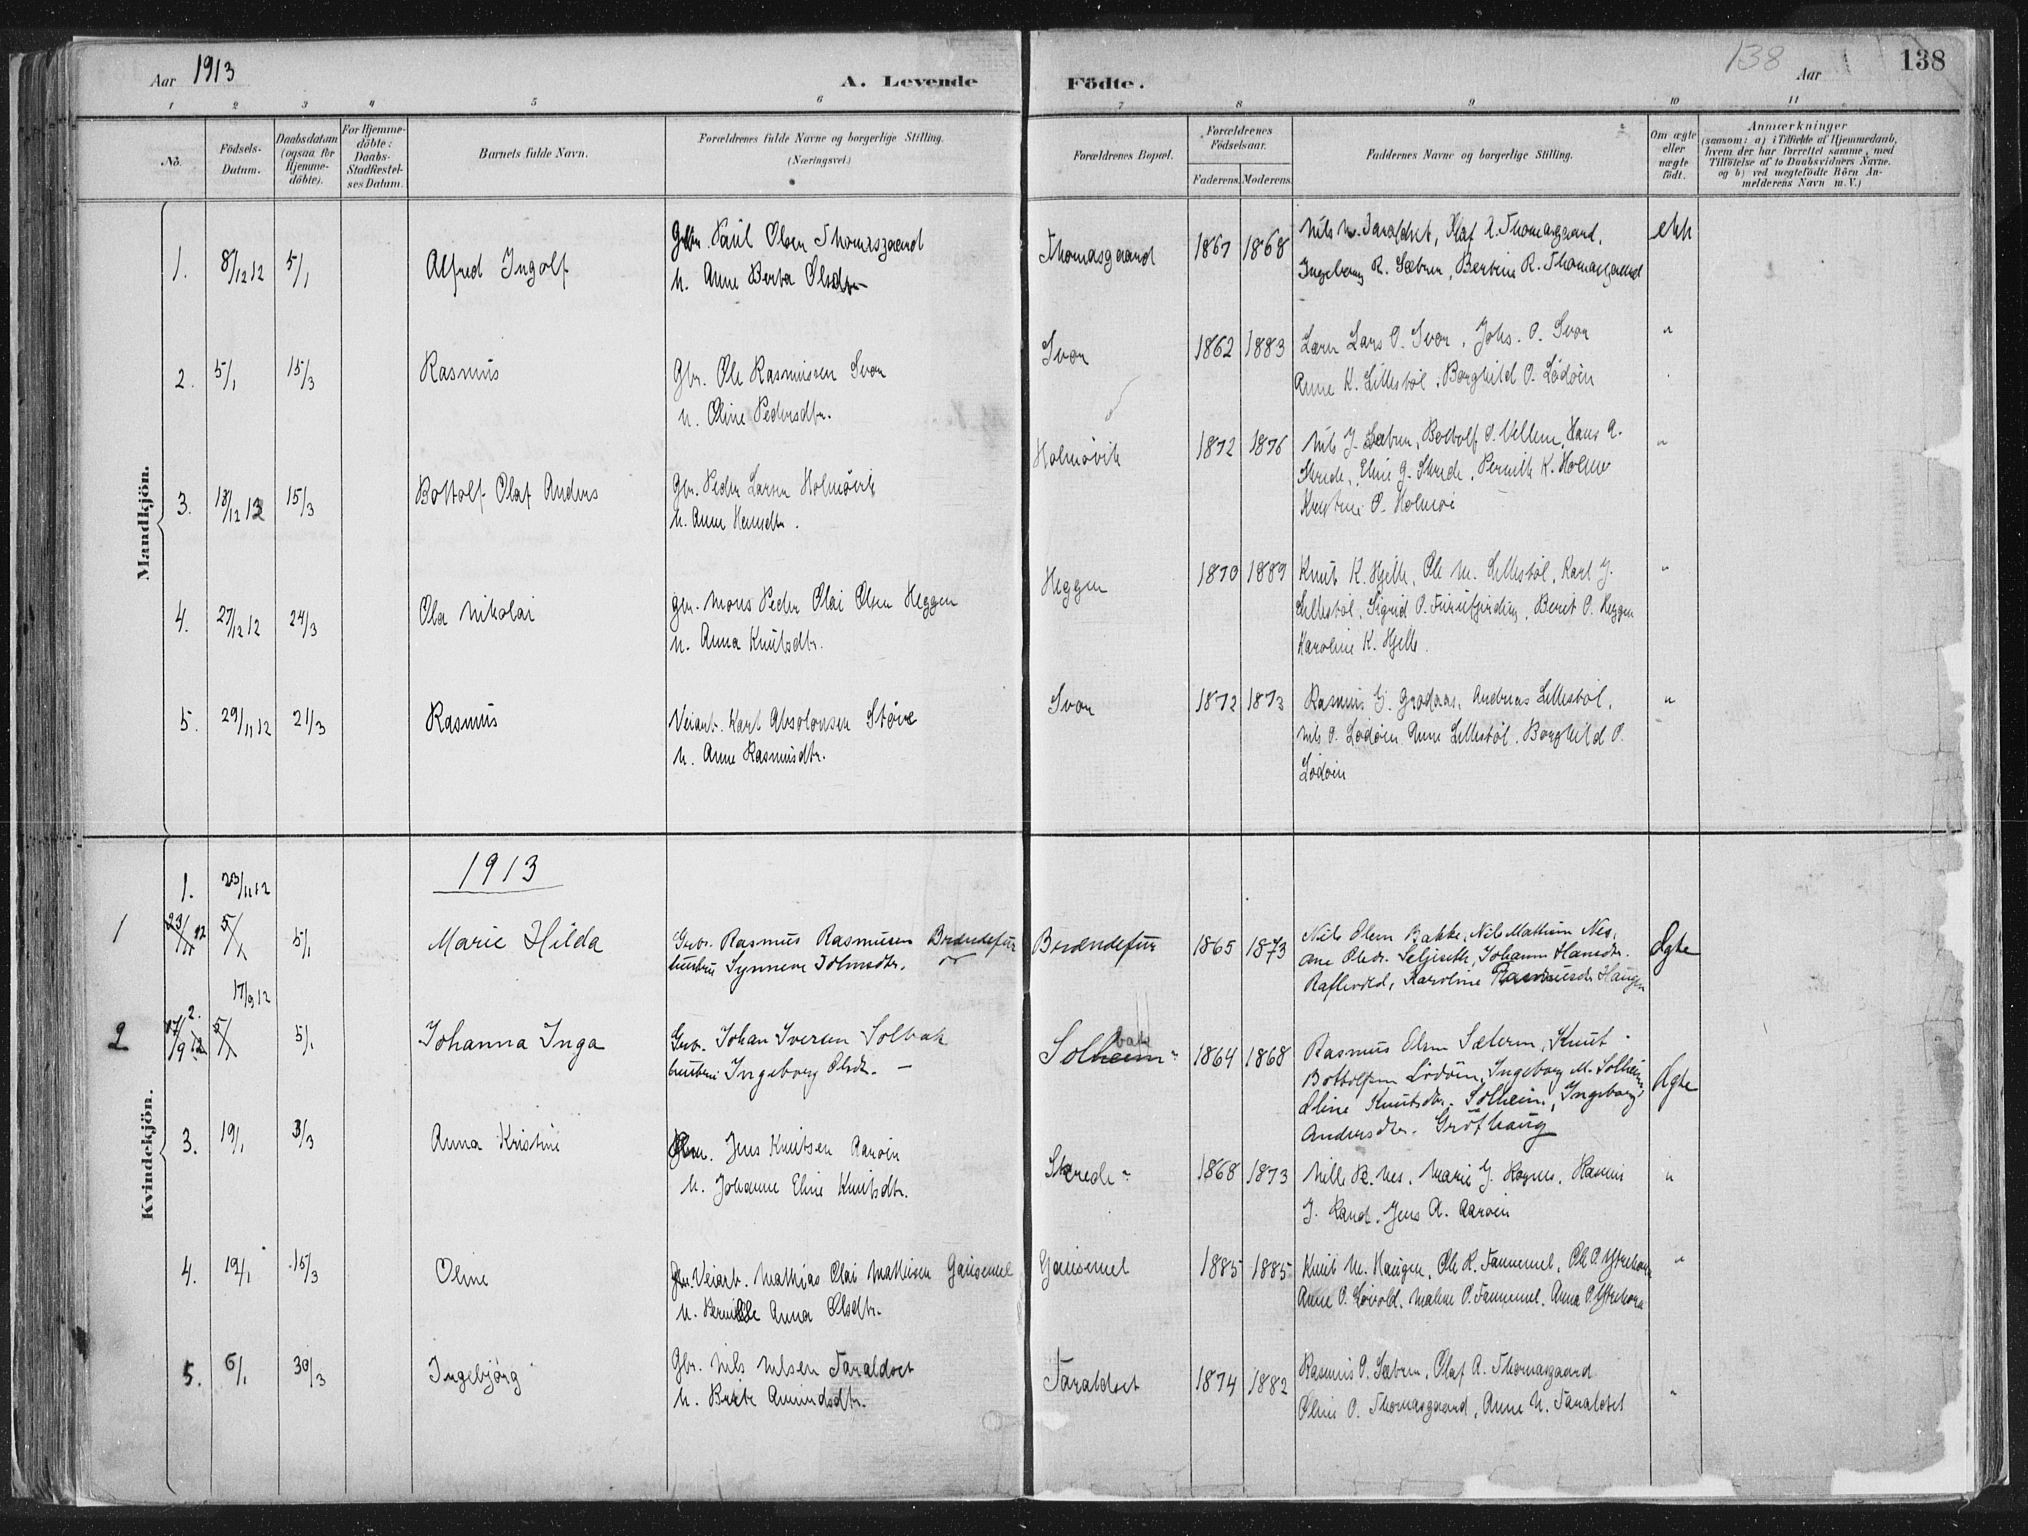 Aar 1913
A. Levende
Födte.
138
Aar
138
1 2 3 4 5 6 7 8 9 10 11
No.
Födsels-
Datum.
Daabsdatum
(ogsaa for
Hjemme-
döbte).
For Hjemme-
döbte:
Daabs-
Stadfæstel-
ses Datum.
Barnets fulde Navn.
Forældrenes fulde Navne og borgerlige Stilling.
(Næringsvei.)
Forældrenes Bopæl.
Forældrenes
Födselsaar.
Faderens. Moderens.
Faddernes Navne og borgerlige Stilling.
Om ægte
eller
uægte
födt.
Anmærkninger
(saasom: a) i Tilfælde af Hjemmedaab,
hvem der har forrettet samme, med
Tilföielse af to Daabsvidners Navne.
og b) ved uægtefödte Börn An-
melderens Navn m. V.)
Mandkjön.
1. 8/12 12 5/1 Alfred Ingolf
Gbr. Paul Olsen Thomasgaard
h. Anne Berta Olsdtr
Thomasgaard 1867 1868
Nils N. Taraldset, Olaf R. Thomasgaard,
Ingeborg R. Sæbren, Bertine R. Thomasgaard
ekte
2. 5/1 15/3 Rasmus
Gbr. Ole Rasmussen Svor
h. Oline Pedersdtr.
Svor 1862 1883
Lærer Lars O. Svor, Johs. O. Svor
Anne K. Lillestöl, Borghild O. Lödöin
"
3. 18/12 12 15/3 Bottolf Olaf Anders
Gbr. Peder Larsen Holmövik
h. Anne Hansdtr.
Holmövik 1872 1876
Nils J. Sæbren, Bottolf O. Vellem, Hans A.
Skrede, Eline G. Skrede, Pernille K. Holmö
Kristine O. Holmöi
"
4. 27/12 12 24/3 Ola Nikolai
Gbr. Mons Peder Olai Olsen Heggen
h. Anna Knutsdtr.
Heggen 1870 1889
Knut K. Hjelle, Ole M. Lillestöl, Karl J.
Lillestöl, Sigrid O. , Beret O. Heggen
Karoline K. Hjelle.
"
5. 29/11 12 21/3 Rasmus
Veiarb. Karl Absolonsen Störe
h. Anne Rasmusdtr.
Svor 1872 1873
Rasmus G. Grodaas, Andreas Lillestöl,
Nils O. Lödöin, Anne Lillestöl, Borghild O.
Lödöin
"
Kvindekjön.
1913
1. 23/11 12
1 23/11 12 5/1 5/1 Marie Hilda
Grbr. Rasmus Rasmusen Brændefur
hustru Synneve Johnsdtr.
Brændefur 1865 1873
Nils Olsen Bakke, Nils Mathisen Nes,
Ane Olsdr. Seljeseth, Johanne Hansdtr.
Raftevold, Karoline Rasmusdr. Haugen
Ægte
17/9 12
2 17/9 12 2. 5/1 5/1 Johanna Inga
Grbr. Johan Iversen Solbak
hustru Ingeborg Olsdr.
Solheim bak 1864 1868
Rasmus Elin. Sætern, Knut
Bottolfsen Lödöin, Ingeborg M. Solheim,
Oline Knutsdtr. Solheim, Ingeborg
Andersdtr. Gröthaug
Ægte
3. 19/1 3/3 Anna Kristine
Gbr. Jens Knutsen Aaröin
h. Johanne Eline Knutsdtr.
Skrede 1868 1873
Nille R. Nes, Marie J. Rognes, Rasmus
J. Rand, Jens A. Aaröin
"
4. 19/1 15/3 Oline
Veiarb. Mathias Olai Mathisen Gausemel
h. Pernille Anna Olsdtr.
Gausemel 1885 1885
Knut M. Haugen, Ole R. Tannemel, Ole P. Ytrehorn
Anne O. Lövold, Malene O. Tannemel, Anna P. Ytrehorn
"
5. 6/1 30/3 Ingebjörg
Gbr. Nils Nilsen Taraldset
h. Berte Amundsdtr.
Taraldset 1874 1882
Rasmus O. Sæbren, Olaf R. Thomasgaard
Oline O. Thomasgaard, Anne N. Taraldset
"